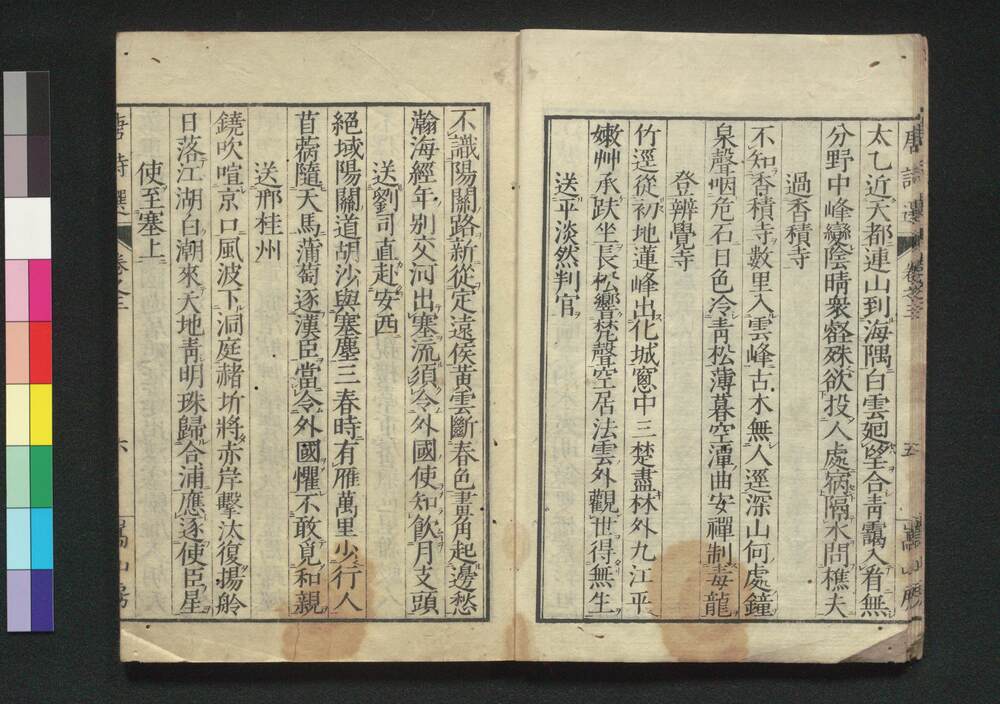 唐詩選 卷之三 五 嵩山房
太乙近天都連山到海隅白雲廻望合青靄入看無
分野中峰變陰晴衆壑殊欲投人處宿隔水問樵夫
過香積寺
不知香積寺數里入雲峰古木無人逕深山何處鐘
泉聲咽危石日色冷青松薄暮空潭曲安禪制毒龍
登辨覺寺
竹逕從初地蓮峰出化城窻中三楚盡林外九江平
嫩艸承趺坐長松響梵聲空居法雲外觀世得無生
送平淡然判官
不識陽關路新從定遠侯黃雲斷春色畫角起邊愁
瀚海經年別交河出塞流須令外國使知飲月支頭
送劉司直赴安西
絕域陽關道胡沙與塞塵三春時有雁萬里少行人
苜蓿隨天馬蒲萄逐漢臣當令外國懼不敢覓和親
送邢桂州
鐃吹喧京口風波下洞庭赭圻將赤岸擊汰復揚舲
日落江湖白潮來天地青明珠歸合浦應逐使臣星
使至塞上
唐詩選 卷之三 六 嵩山房